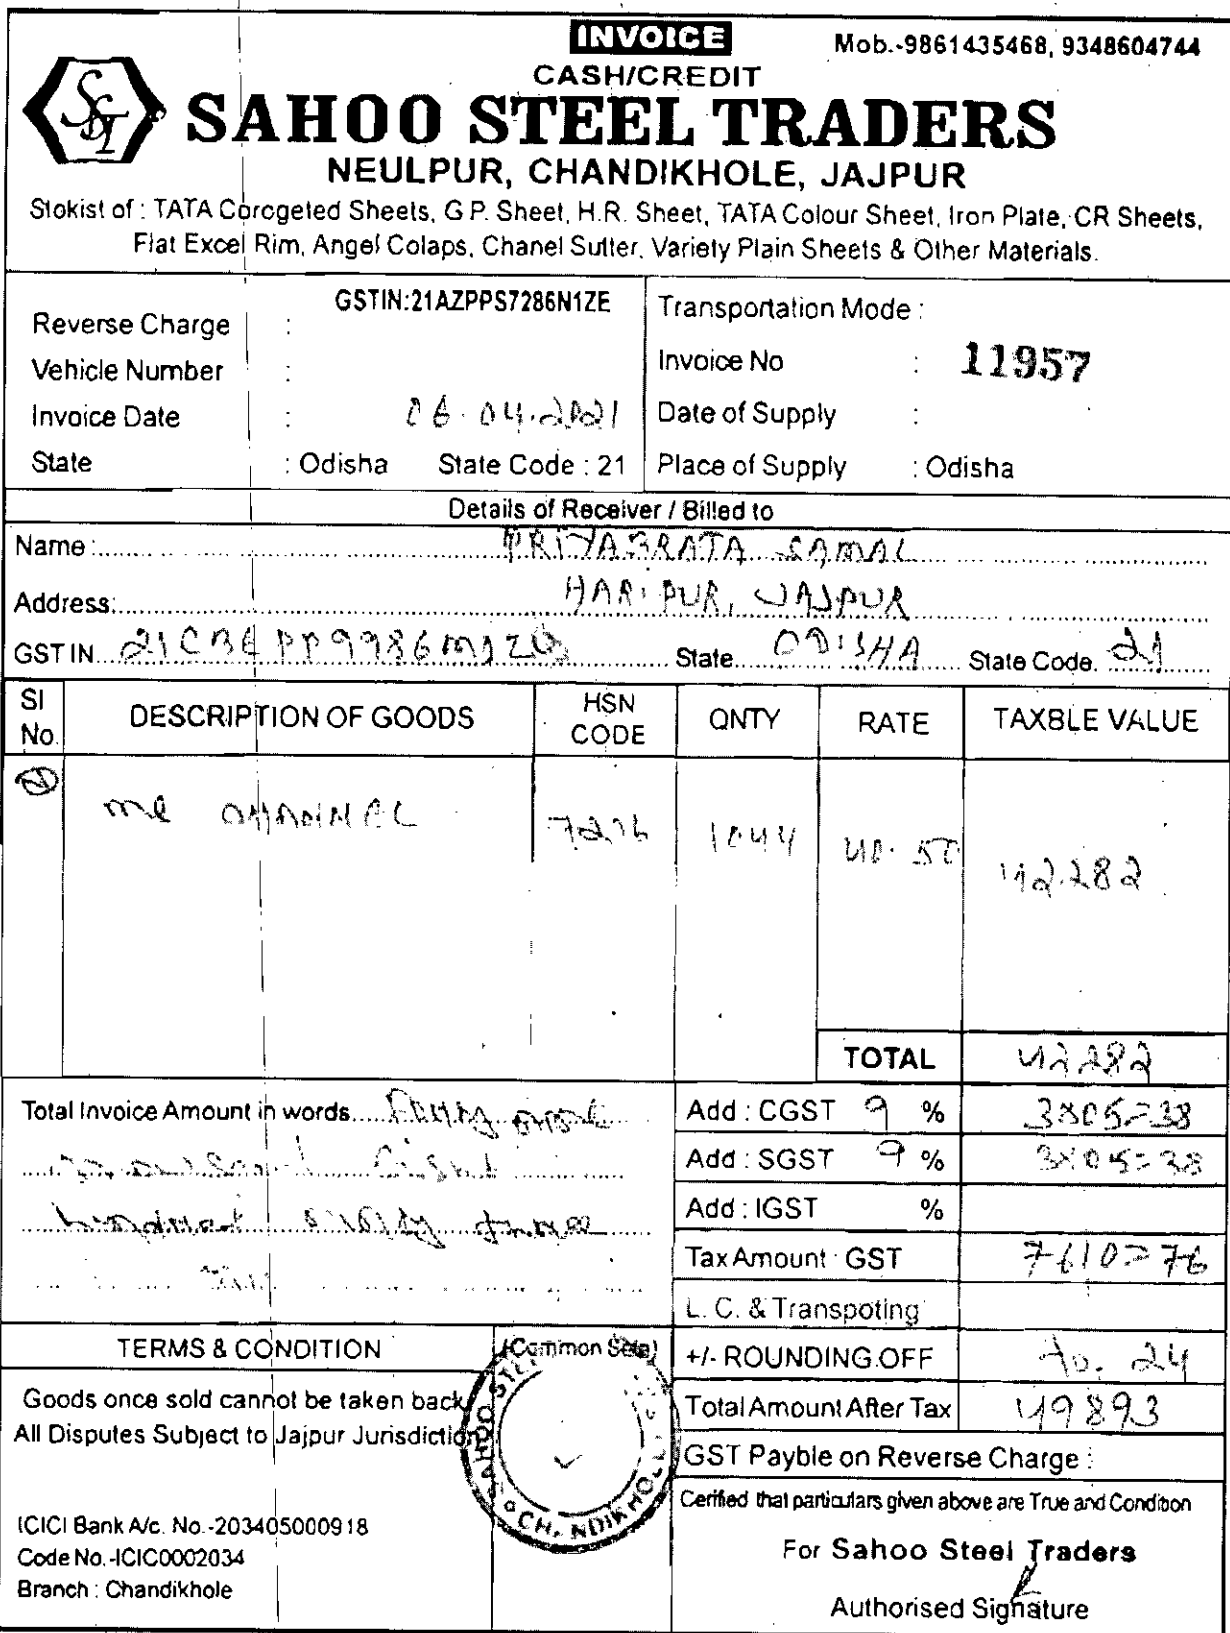 INVOICE
Mob.-9861435468, 9348604744
CASH/CREDIT
SAHOO STEEL TRADERS
NEULPUR, CHANDIKHOLE, JAJPUR
Stokist of : TATA Corogeted Sheets, G.P. Sheet, H.R. Sheet, TATA Colour Sheet, Iron Plate, CR Sheets,
Flat Excel Rim, Angel Colaps, Chanel Sutter, Variety Plain Sheets & Other Materials.
GSTIN:21AZPPS7286N1ZE
Reverse Charge :
Vehicle Number :
Invoice Date : 06.04.2021
State : Odisha State Code : 21
Transportation Mode :
Invoice No : 11957
Date of Supply :
Place of Supply : Odisha
Details of Receiver / Billed to
Name : PRIYABRATA SAMAL
Address: HARIPUR, JAJPUR
GSTIN State ODISHA State Code. 21
SI No. DESCRIPTION OF GOODS HSN CODE QNTY RATE TAXBLE VALUE
CHANNEL 7216 1044 40.50 42282
TOTAL 42282
Total Invoice Amount in words
Add : CGST 9 % 3805=38
Add : SGST 9 % 3805=38
Add : IGST %
Tax Amount : GST 7610=76
L. C. & Transpoting
+/- ROUNDING.OFF 0.24
Total Amount After Tax 49893
GST Payble on Reverse Charge :
TERMS & CONDITION
Goods once sold cannot be taken back
All Disputes Subject to Jajpur Jurisdiction
ICICI Bank A/c. No.-203405000918
Code No.-ICIC0002034
Branch : Chandikhole
(Common Seal)
SAHOO STEEL
CHANDIKHOLE
Cerified that particulars given above are True and Condition
For Sahoo Steel Traders
Authorised Signature